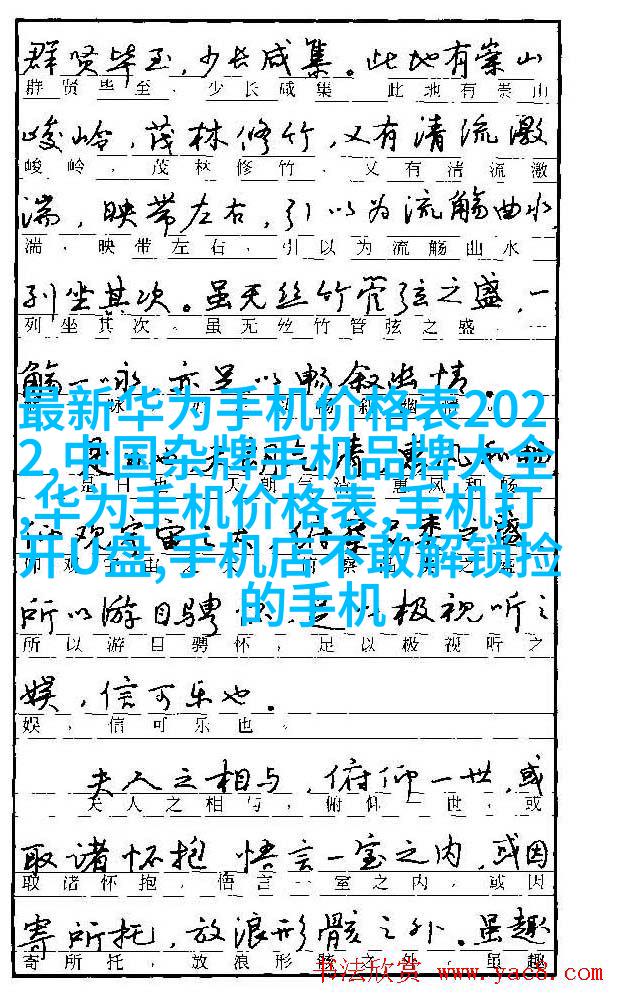 群贤毕至，少长咸集。此地有崇山
群贤毕至，少长咸集。此地有崇山
峻岭，茂林修竹，又有清流激
峻岭，茂林修竹，又有清流激
湍，映带左右，引以为流觞曲水，
湍，映带左右，引以为流觞曲水，
列坐其次。虽无丝竹管弦之盛，一
列坐其次。虽无丝竹管弦之盛，一
觞一咏，亦足以畅叙幽情。
最新华为手机价格表202
2,中国杂牌手机品牌大全
,华为手机价格表,手机打
开U盘,手机店不敢解锁捡
的手机
是日也，天朗气清，惠风和畅
所以游目骋怀，足以极视听之
所以游目骋怀，足以极视听之
娱，信可乐也。
娱，信可乐也。
夫人之相与，俯仰一世，或
夫人之相与，俯仰一世，或
取诸怀抱 悟言一室之内，或因
取诸怀抱，悟言一室之内，或因
寄所托，放浪形骸之外。虽趣
寄所托，放浪形骸之外。虽趣
书法欣赏 www.yac8.com